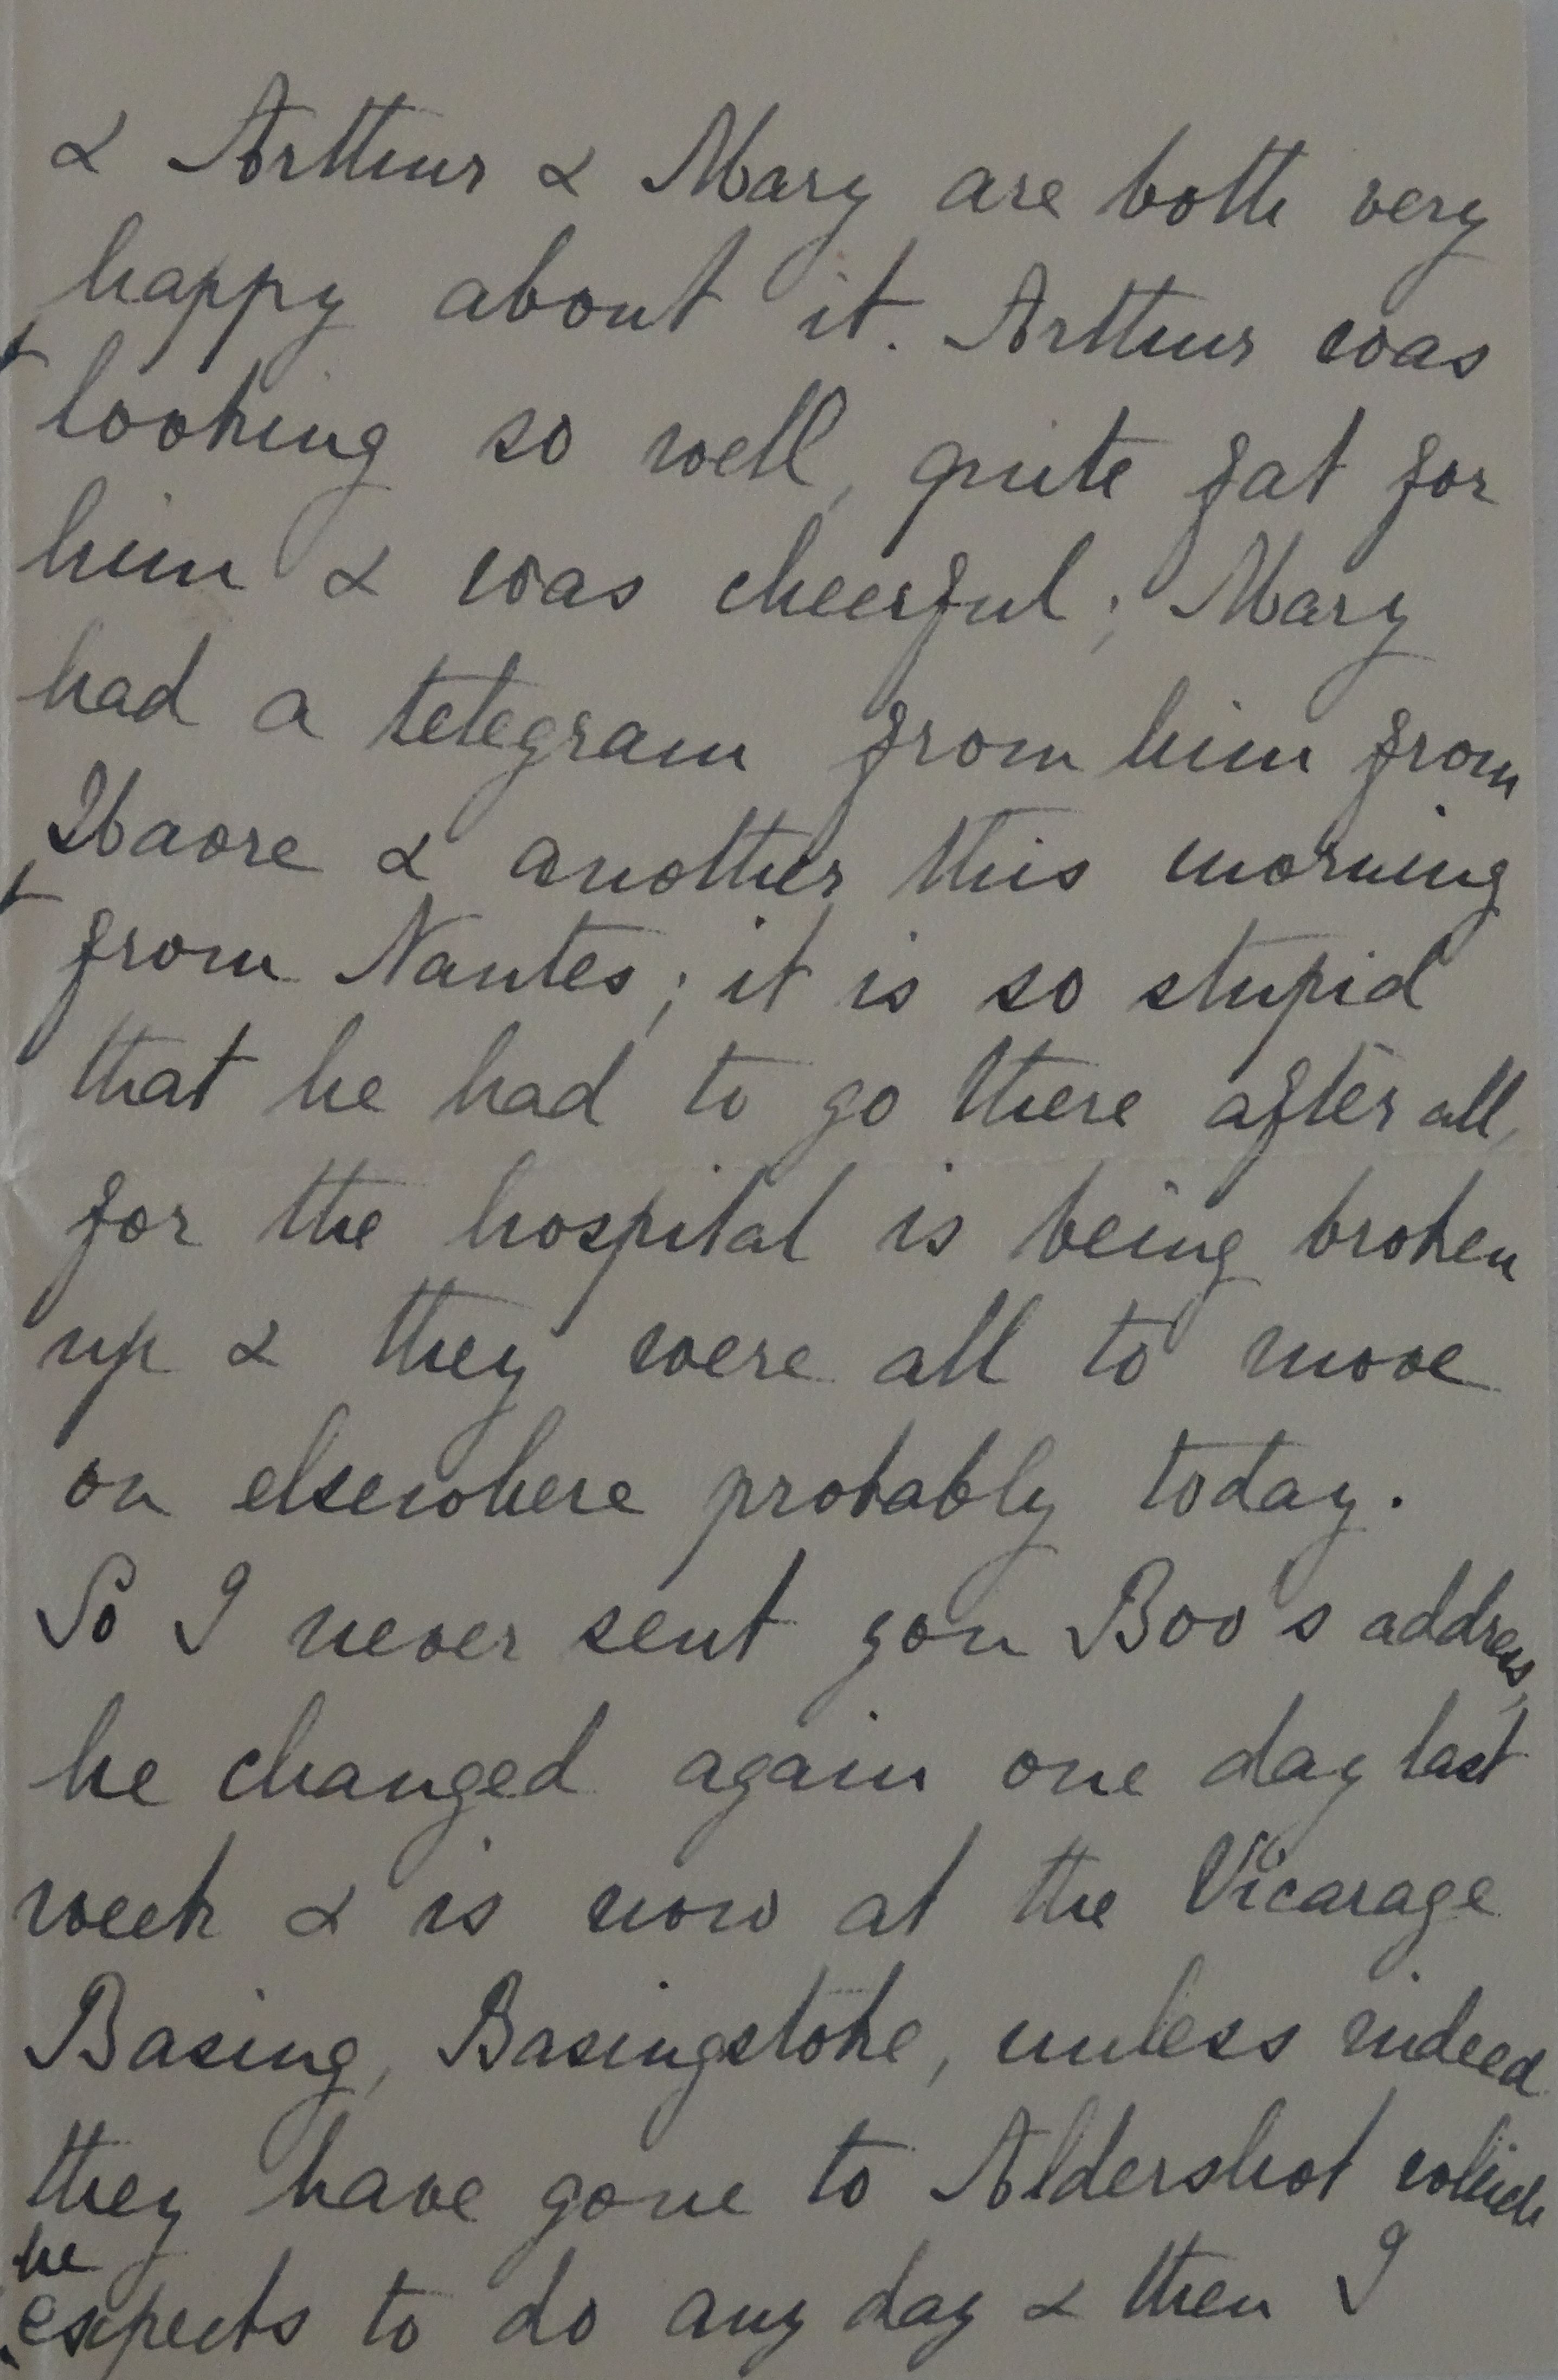 & Arthur & Mary are both very
happy about it. Arthur was
looking so well, quite fat for
him & was cheerful; Mary
had a telegram from him from
Havre & another this morning
from Nantes; it is so stupid
that he had to go there after all,
for the hospital is being broken
up & they were all to move
on elsewhere probably today.
So I never sent you Boo's address,
he changed again one day last
week & is now at the Vicarage
Basing, Basingstoke, unless indeed
they have gone to Aldershot which
he
expects to do any day & then I